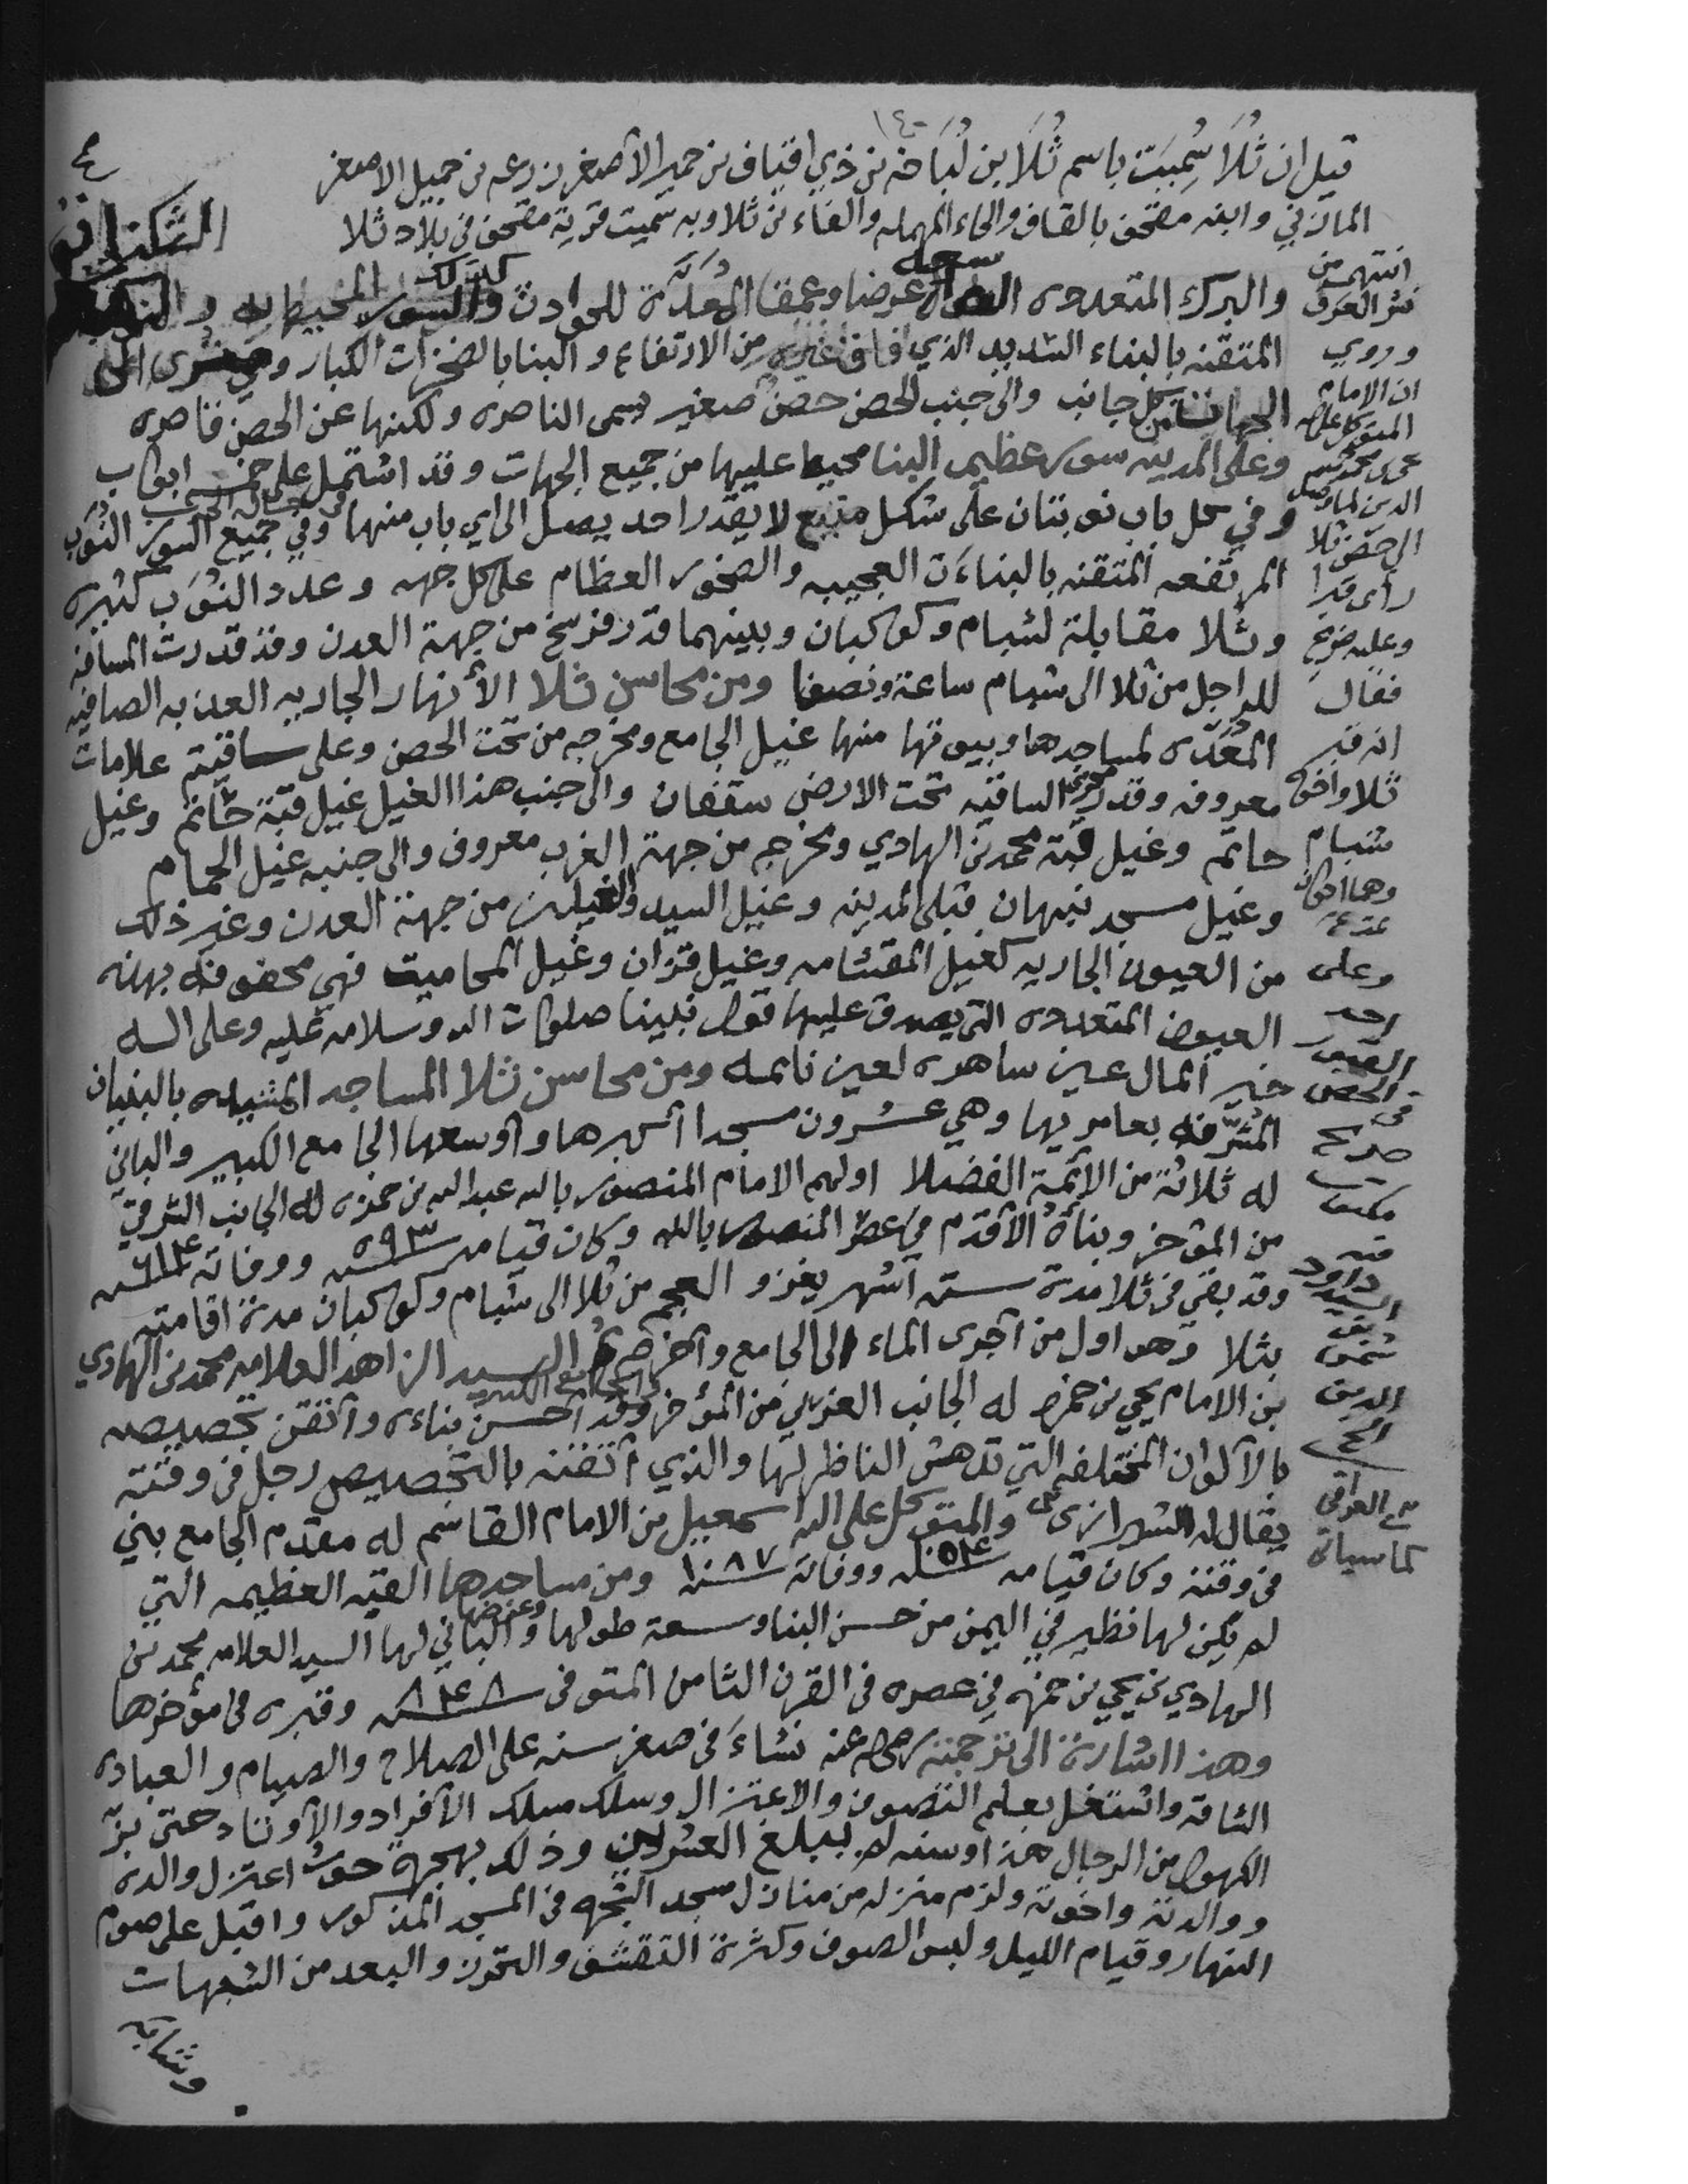 ١٤٠
٤
قيل ان ثُلَا سُمِيَت باسم ثُلَا بن لُبَاخه بن ذي اقيان بن حمير الأصغر بن زرعه بن حمير الاصغر
المازني وابنه مقحف بالقاف والحاء المهمله والفاء بن ثلا وبه سميت قرية مقحف في بلاد ثلا
انتهى من
نشر العرف
وروي
ان الامام
المتوكل على الله
يحيى بن محمد حميد
الدين لما وصل
الى حصن ثلا
رأى قبرا
وعليه ضريح
فقال
انه قبر
ثلا واخوه
شبام
وهما اخوان
وعلى
احد
القبور
في الحصن
ضريح
مكتوب
فيه
السيد داود
بن
شمس
الدين
الخ
والبرك المتعدده سعة عرضا وعمقا المُعَدَّة للحوادث كذلك والسور المحيط به والنوب
المتقنه بالبناء الشديد الذي فاق غيره من الارتفاع والبنا بالصخرات الكبار وهي الى
الجهات من كل جانب والى جنب الحصن حصن صغير يسمى الناصره ولكنها عن الحصن قاصره
وعلى المدينه سور عظيم البنا محيط عليها من جميع الجهات وقد اشتمل على خمسه ابواب
وفي كل باب نوبتان على شكل منيع لا يقدر احد يصل الى اي باب منها في حالة الحرب وفي جميع السور النُوَب
المرتفعه المتقنه بالبناءَت العجيبه والصخور العظام على كل جهه وعدد النُوَب كثيره
وثلا مقابلة لشبام وكوكبان وبينهما قدر فرسخ من جهة العدن وقد قدرت المسافه
للراجل من ثلا الى شبام ساعة ونصفا ومن محاسن ثلا الأنهار الجاريه العذبه الصافيه
المُعَدّه لمساجدها وبيوتها منها غيل الجامع ومخرجه من تحت الحصن وعلى ساقيته علامات
معروفه وقد الساقيه تحت الارض سقفان والى جنب هذا الغيل غيل قبة حاتم وغيل
حاتم وغيل قبة محمد بن الهادي ومخرجه من جهة الغرب معروف والى جنبه غيل الحمام
وغيل مسجد نبهان قبلي المدينه وغيل السيد والغيلين من جهة العدن وغير ذلك
من العيون الجاريه كغيل المقشامه وغيل قران وغيل المحاميت فهي محفوفه بهذه
العيون المتعدده التي يصدق عليها قول نبينا صلوات الله وسلامه عليه وعلى اله
خير المال عين ساهره لعين نائمه ومن محاسن ثلا المساجد المشيده بالبنيان
المُشَرَّفه بعامريها وهي عشرون مسجدا اكبرها واوسعها الجامع الكبير والباني
له ثلاثة من الأئمة الفضلا اولهم الامام المنصور بالله عبدالله بن حمزه له الجانب الشرقي
من المؤخر وبناءه الأقدم في عصر المنصور بالله وكان قيامه سنه ٥٩٣ ووفاته سنه ٦١٤
وقد بقي في ثلا مدة سته أشهر يغزو العجم من ثلا الى شبام وكوكبان مدة اقامته
بثلا وهو اول من أجرى الماء الى الجامع واخرجه ثم السيد الزاهد العلامه محمد بن الهادي
بن الامام يحيى بن حمزه له الجانب الغربي من المؤخر من الجامع الكبير وقد أحسن بناءه وأتقن تجصيصه
بالألوان المختلفه التي تدهش الناظر لها والذي أتقنه بالتجصيص رجل في وقته
يقال له الشيرازي والمتوكل على الله اسمعيل بن الامام القاسم له مقدم الجامع بني
في وقته وكان قيامه سنه ١٠٥٤ ووفاته سنه ١٠٨٧ ومن مساجدها القبه العظيمه التي
لم يكن لها نظير في اليمن من حسن البنا وسعة طولها وعرضها والباني لها السيد العلامه محمد بن
الهادي بن يحيى بن حمزه في عصره في القرن الثامن المتوفى سنه ٨٤٨ وقبره في مؤخرها
وهذا اشارة الى ترجمته رضي الله عنه نشاءَ في صغر سنه على الصلاح والصيام والعباده
الشاقه واشتغل بعلم التصوف والاعتزال وسلك مسلك الأفراد والأوتاد حتى بزّ
الكهول من الرجال هذا وسنه لم يبلغ العشرين وذلك بهجرة حوث اعتزل والده
ووالدته واخوته ولزم منزله من منازل مسجد الشجره في المسجد المذكور واقبل على صوم
النهار وقيام الليل ولبس الصوف وكثرة التقشف والتحرز والبعد من الشبهات
وثيابه